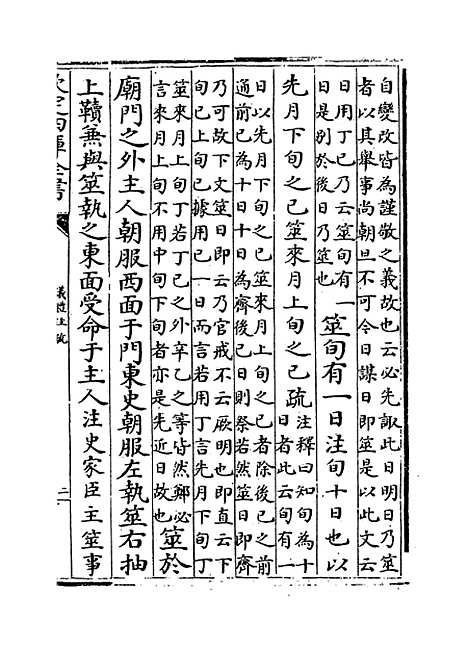 自變改皆為謹敬之義故也云必先諏此日明日乃筮
者以其舉事尚朝旦不可今日謀日即筮是以此文云
日用丁已乃云筮旬有一
日是別於後日乃筮也
筮旬有一日注旬十日也以
先月下旬之已筮來月上旬之已疏
注釋曰知旬為十
日者此云旬有一
日以先月下旬之已筮來月上旬之已者除後已之前
通前已為十日十日為齋後已日則祭若然筮日即齊
乃可故下文筮日即云乃官戒不云厥明也即直云下
旬已上旬已據用已一日而言若用丁言先月下旬丁
筮來月上旬丁若丁已之外辛乙之等皆然鄭必
言來月上旬不用中旬下旬者亦是先近日故也
筮於
廟門之外主人朝服西面于門東史朝服左執筮右抽
上韇兼與筮執之東面受命于主人注史家臣主筮事
欽定四庫全書
儀禮注疏